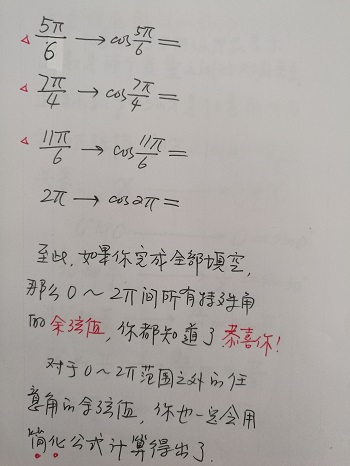 5π/6 → cos 5π/6 =
7π/4 → cos 7π/4 =
11π/6 → cos 11π/6 =
2π → cos2π =
至此,如果你完成全部填空,
那么0～2π间所有特殊角
的余弦值,你都知道了恭喜你!
对于0～2π范围之外的任
意角的余弦值,你也一定会用
简化公式计算得出了.